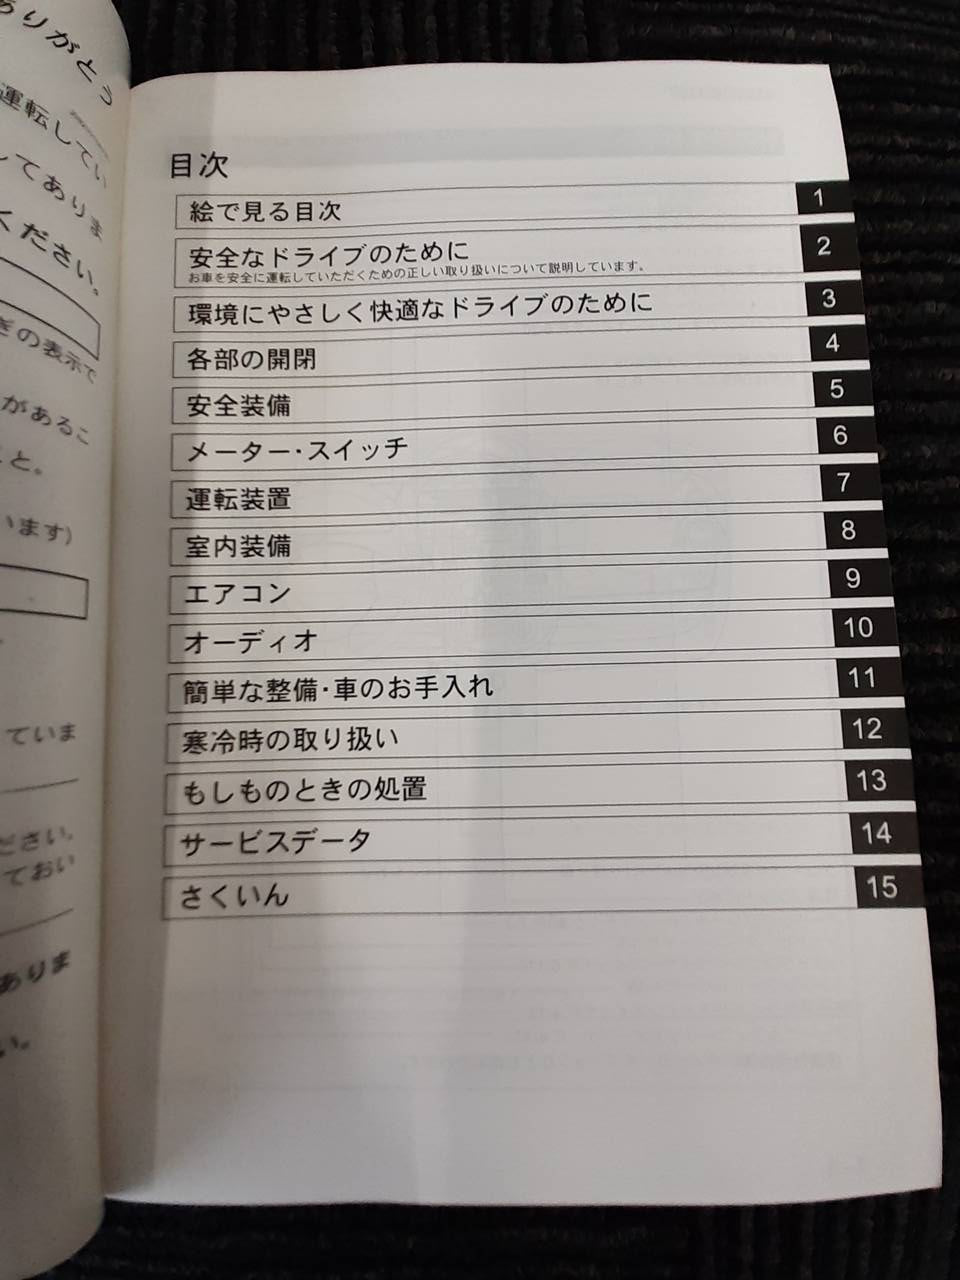 ありがとう
運転してい
してありま
ください。
ぎの表示で
があるこ
と。
います)
ていま
ださい。
ておい
ありま
い。
目次
絵で見る目次 1
安全なドライブのために 2
お車を安全に運転していただくための正しい取り扱いについて説明しています。
環境にやさしく快適なドライブのために 3
各部の開閉 4
安全装備 5
メーター・スイッチ 6
運転装置 7
室内装備 8
エアコン 9
オーディオ 10
簡単な整備・車のお手入れ 11
寒冷時の取り扱い 12
もしものときの処置 13
サービスデータ 14
さくいん 15